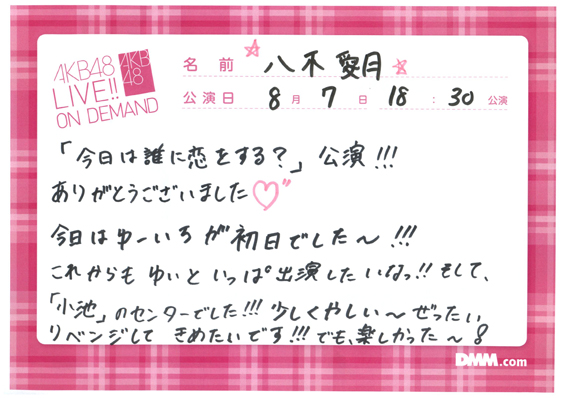 AKB48
LIVE!!
ON DEMAND
AKB
48
名前 八木愛月
公演日 8月7日 18:30公演
「今日は誰に恋をする?」公演!!!
ありがとうございました♡"
今日はゆーいろが初日でした〜!!!
これからもゆいといっぱ°出演したいなっ!!そして、
「小池」のセンターでした!!!少しくやしい〜ぜったい
リベンジしてきめたいです!!!でも、楽しかった〜
DMM.com